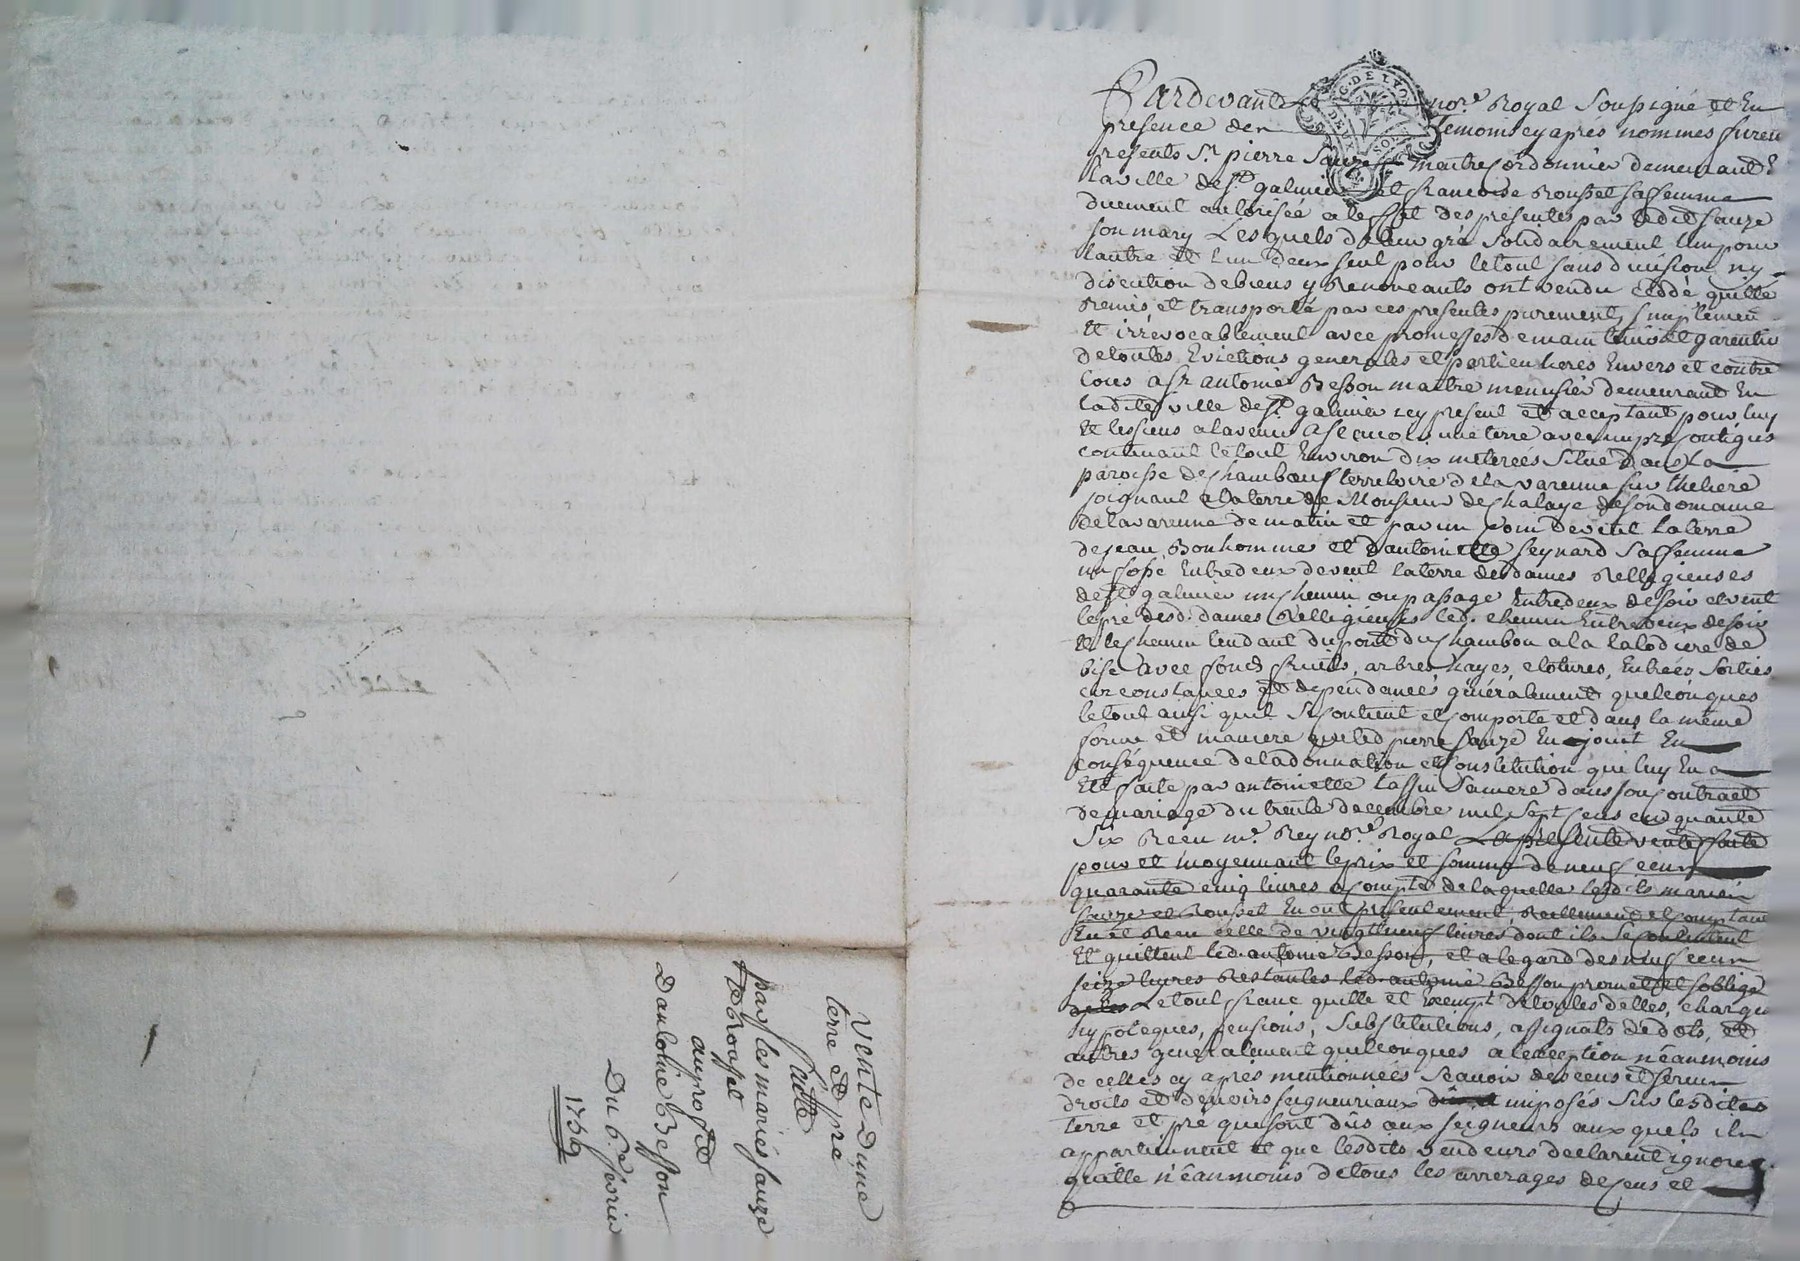 Pardevant nore. Royal Soussigné et En
presence des temoins cy aprés nommes furen
presents Sr. pierre Sauze maitre Cordonnier demeurant E
la ville de St. galmier et francoise Rousset sa femme
duement autorisée a leffet des presentes par ledit Sauze
son mary Lesquels de leur gré Solidairement lun pour
lautre et lun deux seul pour le tout sans division ny
discution de biens y Renonceants ont vendu cédé, quitté
Remis et transporté par ces presentes purement, simplemen
et irrévocablement avec promesses de maintenir et garentir
de toutes Evictions generales et particulieres Envers et contre
tous a Sr antoine Besson maitre menusier demeurant En
ladite ville de St. galmier icy present et acceptant pour luy
et les siens a lavenir A Scavoir une terre avec un pré Contigus
contenant le tout Environ dix meterées Situé dans la
paroisse de Chambœuf terretoire de la varenne sur
joignant a la terre de Monsieur de Chalaye de son domaine
de la varenne de matin et par un Coin de vent la terre
de jean Bonhomme et dantoinette Seynard Sa femme
un fossé Entredeux de vent la terre des dames Relligieuses
de St galmier un chemin ou passage Entredeux de soir et vent
le pré desd. dames Relligieuses led. chemin Entredeux de soir
et le chemin tendant du pont du Chambon a la de
bise avec fonds fruits, arbres hayes, clotures, Entrées, Sorties
circonstances et dependances généralement quelconques
le tout ainsi quil Se Contient et Comporte et dans la méme
forme et maniere que led pierre Sauze En jouit En
Conséquence de la donnation et Constitution que luy En a
Eté faite par antoinette tassin Sa mere dans son Contract
de mariage du trente decembre mil Sept Cens cinquante
Six Recu me. Rey nore. Royal La presente vente faite
pour et moyennant le prix et somme de neuf cens
quarante cinq livres a Compte de laquelle lesdits mariés
Sauze et Rousset En ont presentement, Reellement et Comptant
Eu et Recu celle de vingt neuf livres dont ils Se Contentent
et quittent led. antoine Besson, et a legard des neuf cens
seize livres Restantes led antoine Besson promet et soblige
Le tout franc quitte et Exempt de toutes dettes, charges
hypoteques, pensions, Substitutions, assignats de dots, et
autres generalement quelconques a lexception néanmoins
de celles cy apres mentionnées Scavoir des cens et servis
droits et devoirs seigneuriaux imposés sur lesdites
terre et pré qui sont dûs aux seigneurs aux quels ils
appartiennent et que lesdits vendeurs declarent ignorer
quitte néanmoins de tous les arrerages de Cens et
Vente Dune
terre et pra
faitte
par les mariés Sauze
et Rousset
au profit
Danthoine Besson
Du 6e fevrier